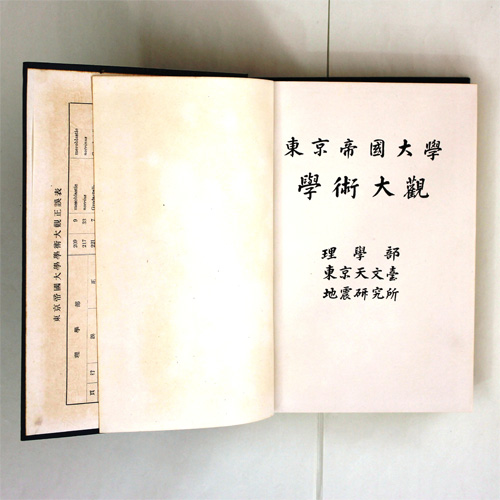 東京帝國大學
學術大觀
理學部
東京天文臺
地震硏究所
東京帝國大學學術大觀正誤表
理學部
頁 行 誤 正
209 9
217 33
221 7